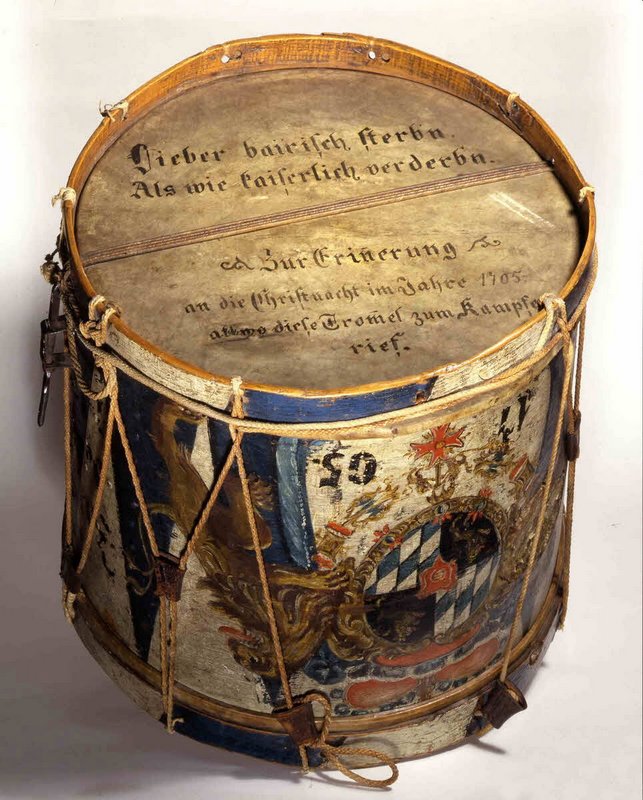 Lieber bairisch sterb'n.
Als wie kaiserlich verderb'n.
Zur Erinerung
an die Christnacht im Jahre 1705
diese Tromel zum Kampfe
rief.